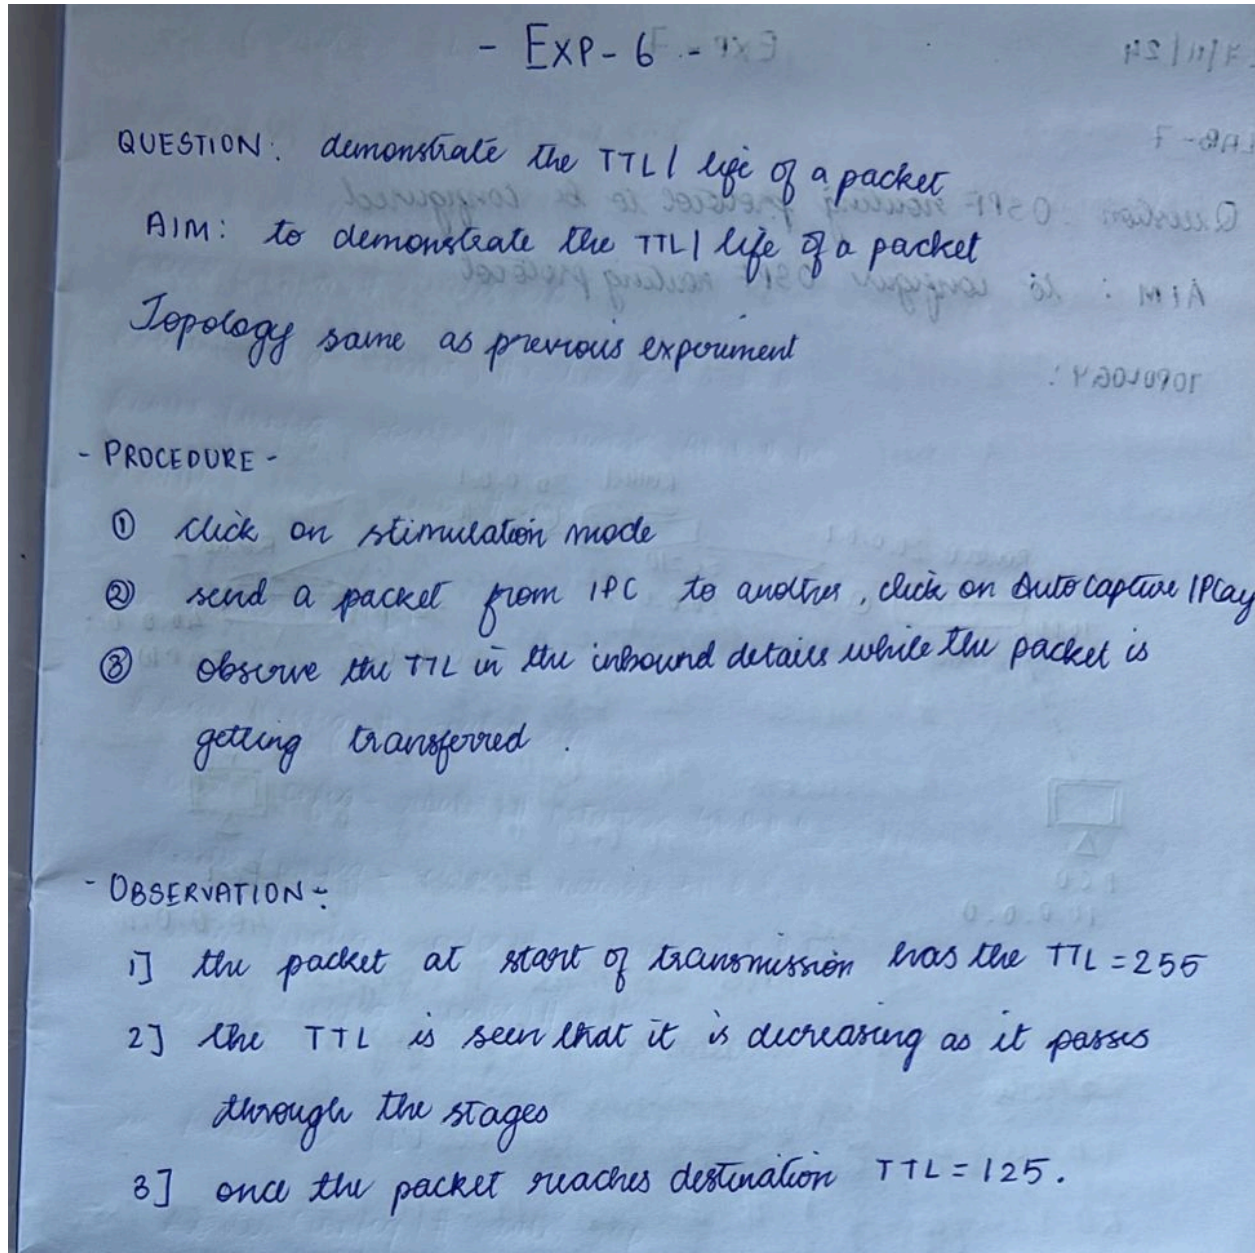 - EXP-6 -
QUESTION: demonstrate the TTL| life of a packet
AIM: to demonstrate the TTL| life of a packet
Topology same as previous experiment
- PROCEDURE -
① click on stimulation mode
② send a packet from 1PC to another, click on Auto capture |Play
③ observe the TTL in the inbound details while the packet is
getting transferred.
- OBSERVATION -
1] the packet at start of transmission has the TTL = 255
2] the TTL is seen that it is decreasing as it passes
through the stages
3] once the packet reaches destination TTL = 125.